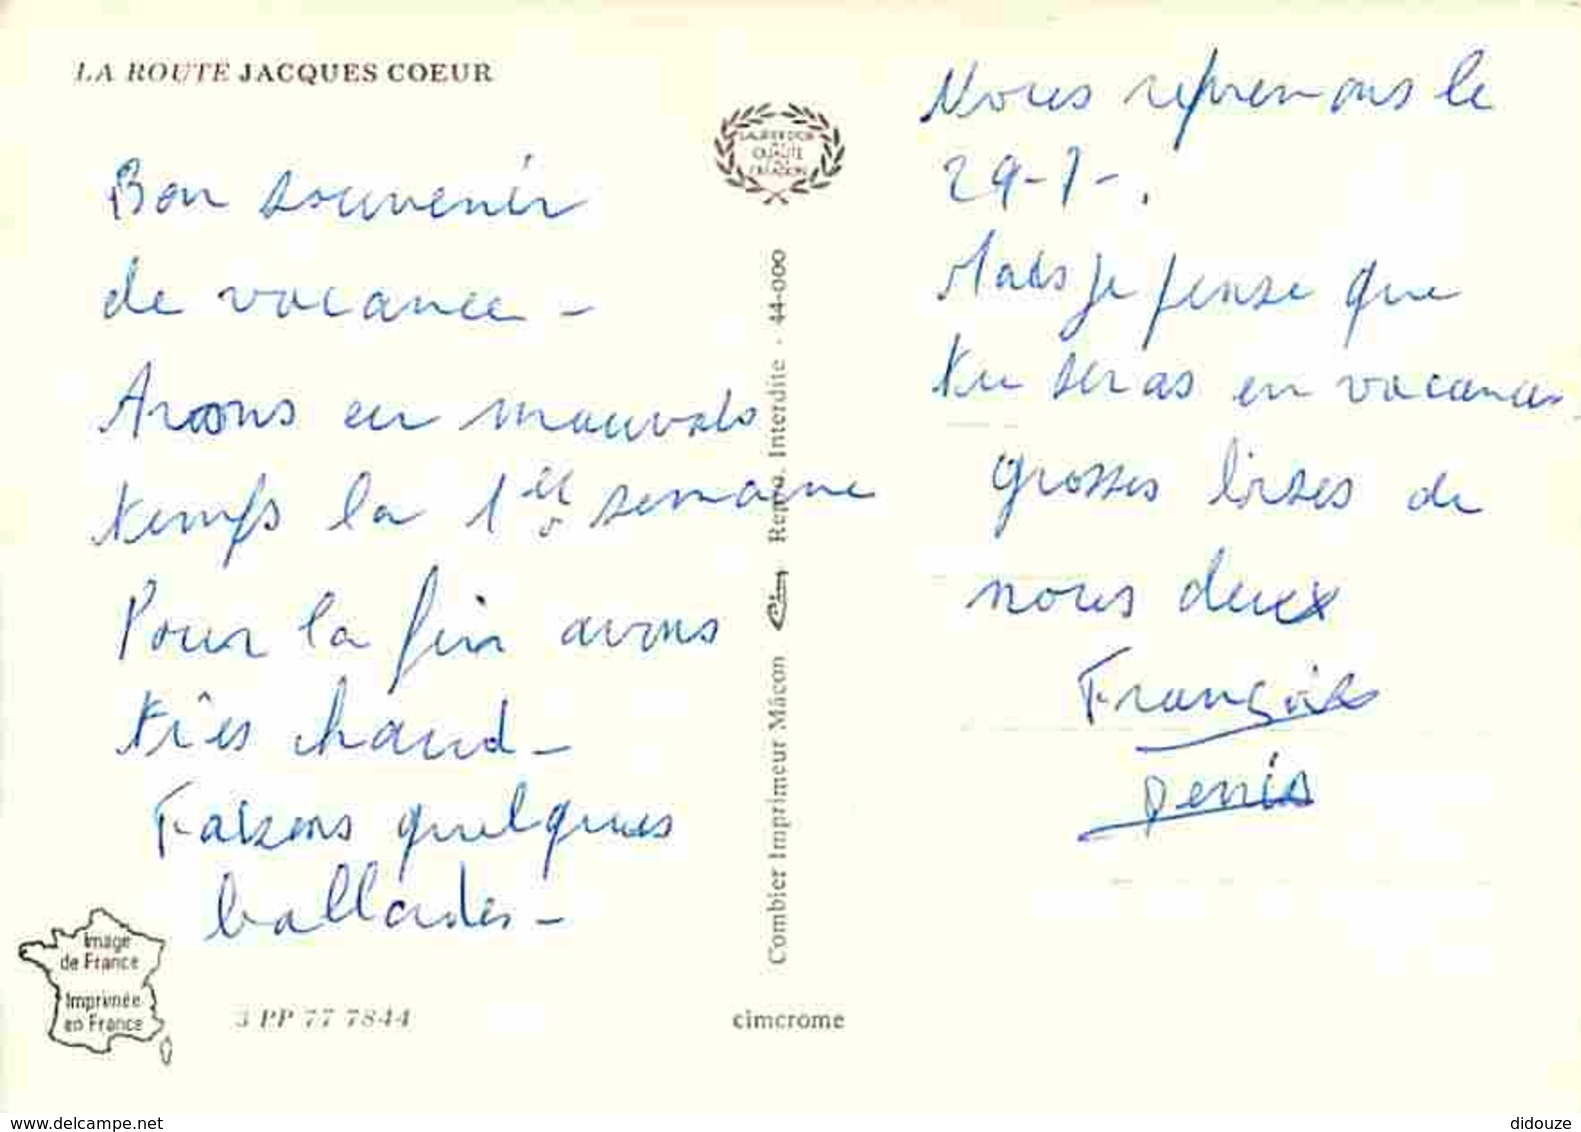 LA ROUTE JACQUES COEUR
Bon souvenir
de vacance -
Avons eu mauvais
temps la 1ère semaine
Pour la fin avons
très chaud -
Faisons quelques
ballades -
Nous reprenons le
29-7-.
Mais je pense que
tu seras en vacances
grosses bises de
nous deux
François
Denis
QUALITÉ
Combier Imprimeur Mâcon Cim Repro. Interdite - 44-000
Image
de France
Imprimée
en France
3 PP 77 7844
cimcrome
www.delcampe.net
didouze